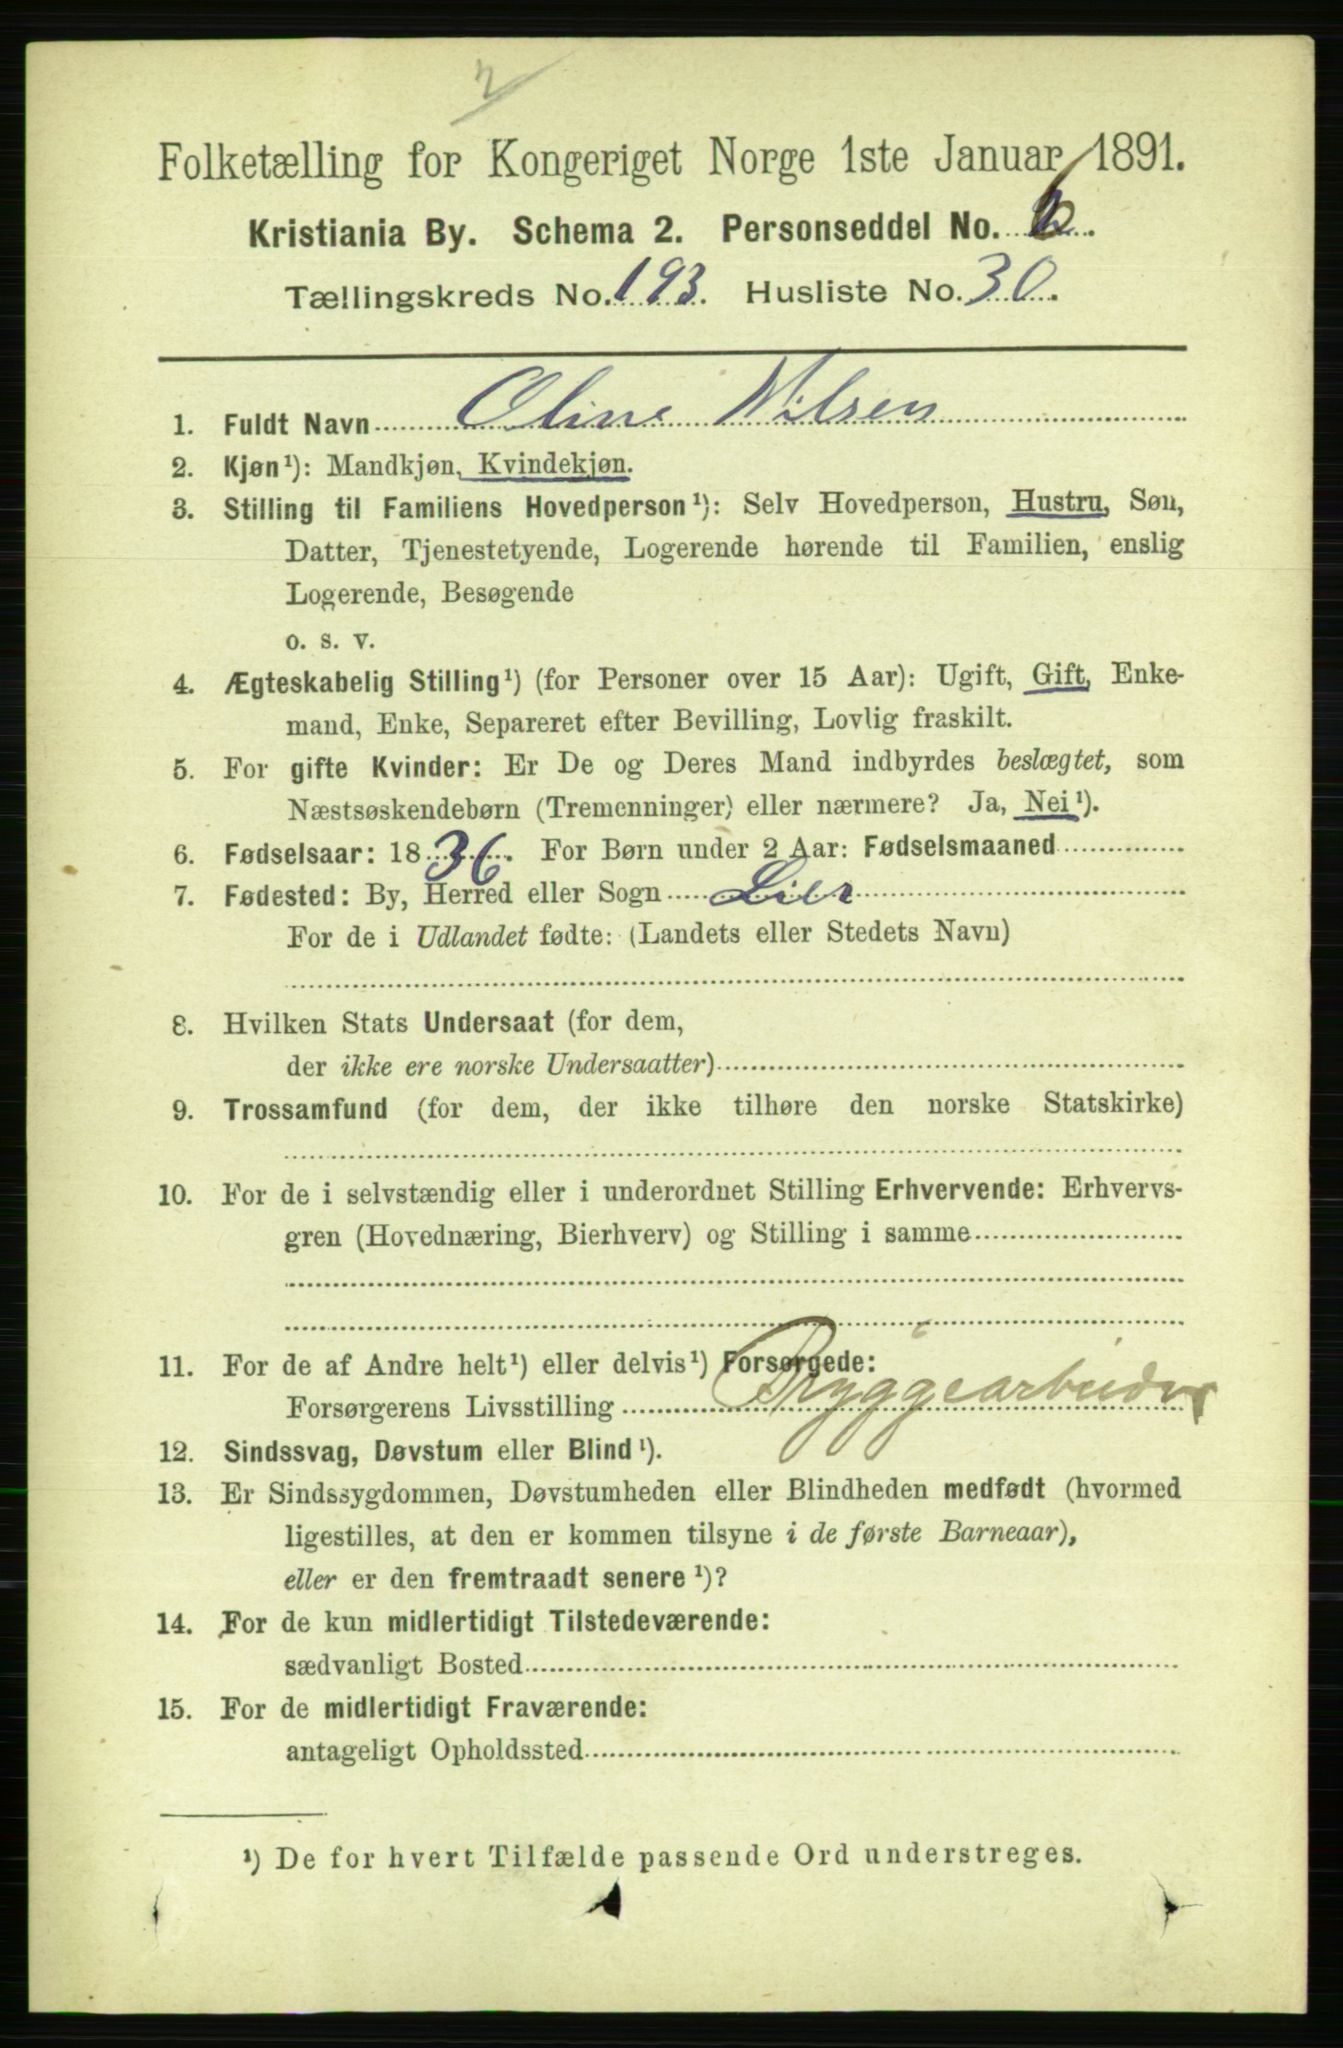 2
Folketælling for Kongeriget Norge 1ste Januar 1891.
Kristiania By. Schema 2. Personseddel No. 6.
Tællingskreds No. 193. Husliste No. 30.
1. Fuldt Navn Oline Nilsen
2. Kjøn¹): Mandkjøn, Kvindekjøn.
3. Stilling til Familiens Hovedperson¹): Selv Hovedperson, Hustru, Søn,
Datter, Tjenestetyende, Logerende hørende til Familien, enslig
Logerende, Besøgende
o. s. v.
4. Ægteskabelig Stilling¹) (for Personer over 15 Aar): Ugift, Gift, Enke-
mand, Enke, Separeret efter Bevilling, Lovlig fraskilt.
5. For gifte Kvinder: Er De og Deres Mand indbyrdes beslægtet, som
Næstsøskendebørn (Tremenninger) eller nærmere? Ja, Nei¹).
6. Fødselsaar: 1836. For Børn under 2 Aar: Fødselsmaaned
7. Fødested: By, Herred eller Sogn Lier
For de i Udlandet fødte: (Landets eller Stedets Navn)
8. Hvilken Stats Undersaat (for dem,
der ikke ere norske Undersaatter)
9. Trossamfund (for dem, der ikke tilhøre den norske Statskirke)
10. For de i selvstændig eller i underordnet Stilling Erhvervende: Erhvervs-
gren (Hovednæring, Bierhverv) og Stilling i samme
11. For de af Andre helt¹) eller delvis¹) Forsørgede:
Forsørgerens Livsstilling Bryggearbeider
12. Sindssvag, Døvstum eller Blind¹).
13. Er Sindssygdommen, Døvstumheden eller Blindheden medfødt (hvormed
ligestilles, at den er kommen tilsyne i de første Barneaar),
eller er den fremtraadt senere¹)?
14. For de kun midlertidigt Tilstedeværende:
sædvanligt Bosted
15. For de midlertidigt Fraværende:
antageligt Opholdssted
¹) De for hvert Tilfælde passende Ord understreges.